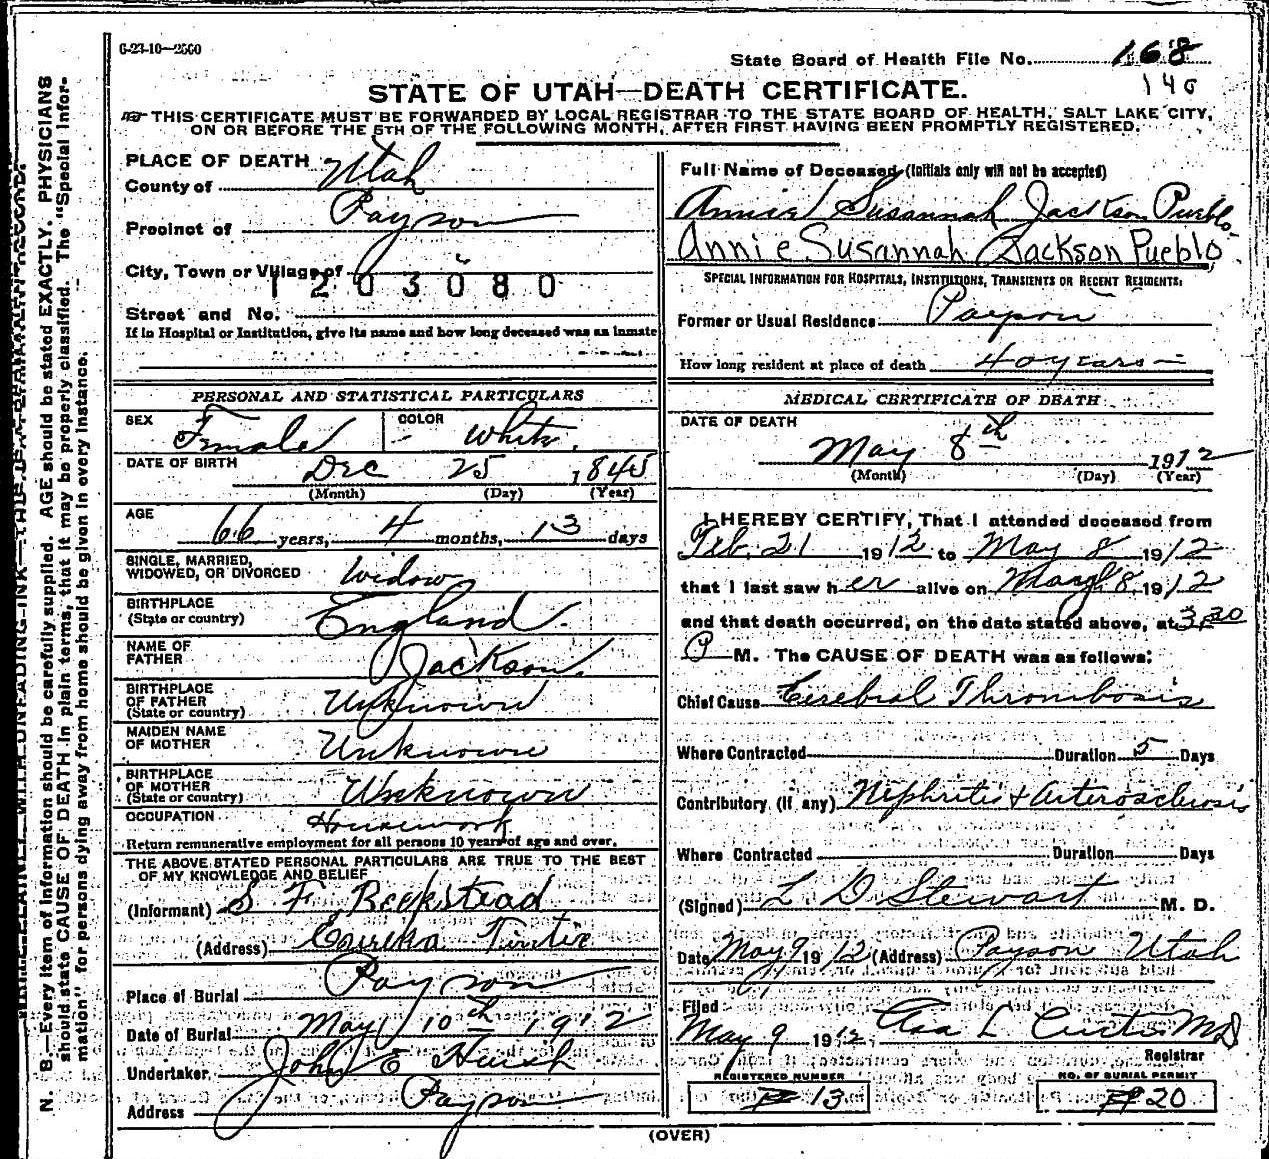 6-23-10—2500
State Board of Health File No. 168
140
STATE OF UTAH—DEATH CERTIFICATE.
THIS CERTIFICATE MUST BE FORWARDED BY LOCAL REGISTRAR TO THE STATE BOARD OF HEALTH, SALT LAKE CITY,
ON OR BEFORE THE 5TH OF THE FOLLOWING MONTH, AFTER FIRST HAVING BEEN PROMPTLY REGISTERED.
PLACE OF DEATH
County of Utah
Precinct of Payson
City, Town or Village of
1203080
Street and No.
If in Hospital or Institution, give its name and how long deceased was an inmate
PERSONAL AND STATISTICAL PARTICULARS
SEX Female COLOR White
DATE OF BIRTH Dec 25 1845
(Month) (Day) (Year)
AGE 66 years, 4 months, 13 days
SINGLE, MARRIED,
WIDOWED, OR DIVORCED Widow
BIRTHPLACE
(State or country) England
NAME OF
FATHER Jackson
BIRTHPLACE
OF FATHER
(State or country) Unknown
MAIDEN NAME
OF MOTHER Unknown
BIRTHPLACE
OF MOTHER
(State or country) Unknown
OCCUPATION Housework
Return remunerative employment for all persons 10 years of age and over.
THE ABOVE STATED PERSONAL PARTICULARS ARE TRUE TO THE BEST
OF MY KNOWLEDGE AND BELIEF
(Informant) S F Beckstead
(Address) Eureka Tintic
Place of Burial Payson
Date of Burial May 10th 1912
Undertaker John E Huish
Address Payson
(OVER)
Full Name of Deceased (Initials only will not be accepted)
Annie Susannah Jackson Pueblo
Annie Susannah Jackson Pueblo
SPECIAL INFORMATION FOR HOSPITALS, INSTITUTIONS, TRANSIENTS OR RECENT RESIDENTS:
Former or Usual Residence Payson
How long resident at place of death 40 years
MEDICAL CERTIFICATE OF DEATH
DATE OF DEATH
May 8th 1912
(Month) (Day) (Year)
I HEREBY CERTIFY, That I attended deceased from
Feb. 21 1912 to May 8 1912
that I last saw her alive on May 8, 1912
and that death occurred, on the date stated above, at 3.30
P M. The CAUSE OF DEATH was as follows:
Chief Cause Cerebral Thrombosis
Where Contracted Duration 5 Days
Contributory (if any) Nephritis & Arterosclerosis
Where Contracted Duration Days
(Signed) L D Stewart M. D.
Date May 9 1912 (Address) Payson Utah
Filed
May 9 1912 Asa L Curtis MD
Registrar
REGISTERED NUMBER
13
NO. OF BURIAL PERMIT
20
N. B.—Every item of information should be carefully supplied. AGE should be stated EXACTLY. PHYSICIANS
should state CAUSE OF DEATH in plain terms, that it may be properly classified. The "Special Infor-
mation" for persons dying away from home should be given in every instance.